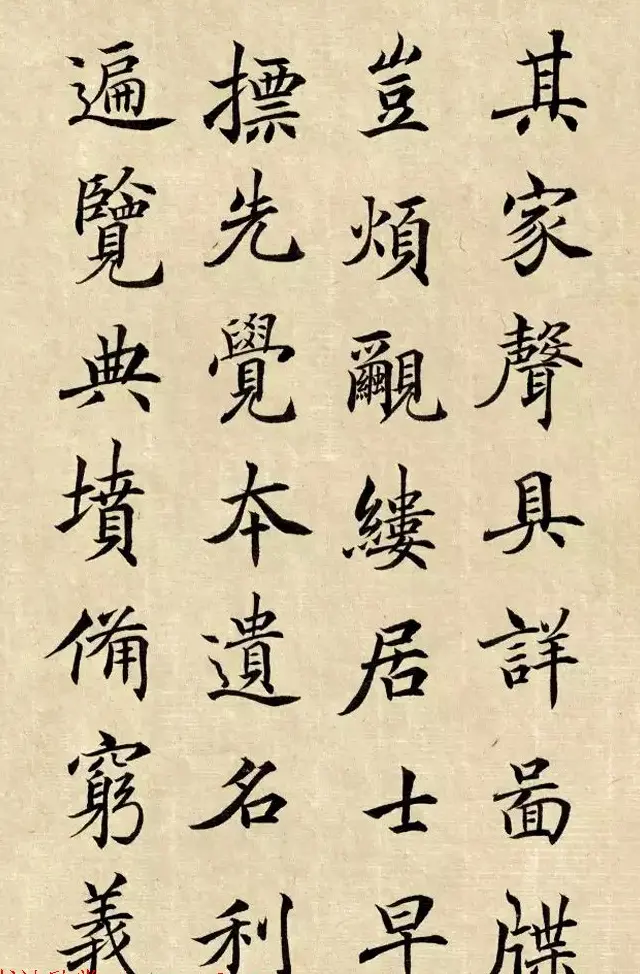 其家聲具詳啚牒
豈煩覼縷居士早
摽先覺夲遺名利
遍覽典墳備窮義